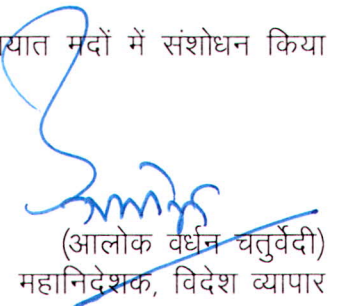 यात मदों में संशोधन किया
(आलोक वर्धन चतुर्वेदी)
महानिदेशक, विदेश व्यापार